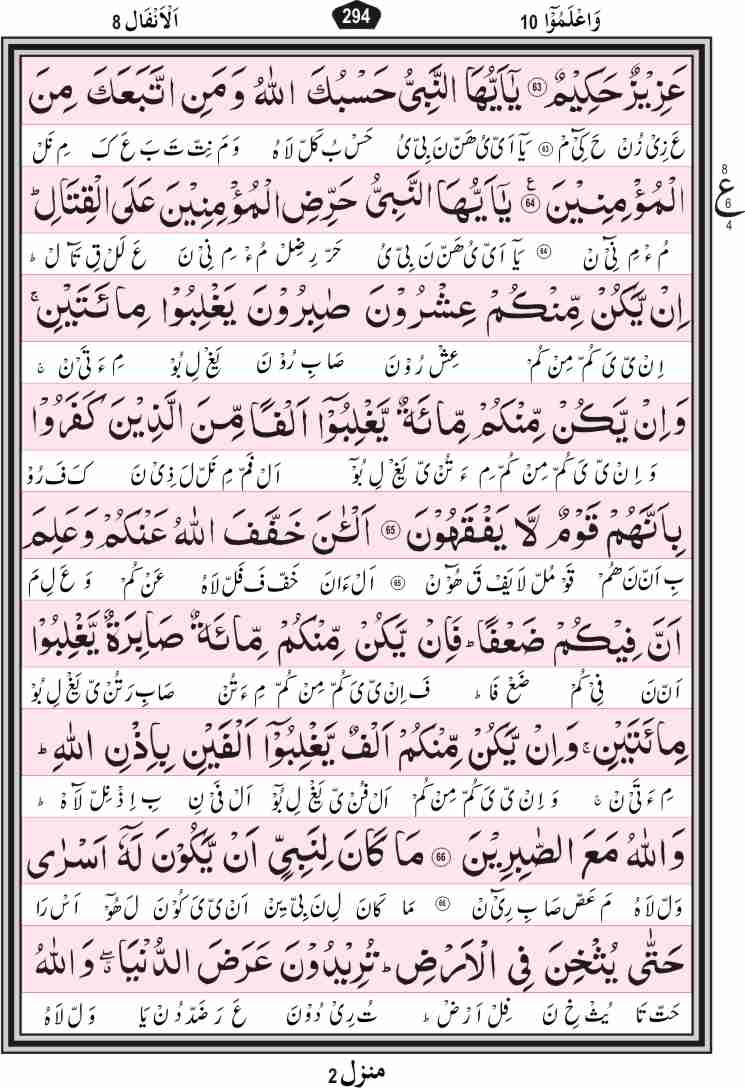 وَاعْلَمُوْٓا 10 294 اَلْاَنْفَال 8
عَزِيْزٌ حَكِيْمٌ ۝63 يٰٓاَيُّهَا النَّبِيُّ حَسْبُكَ اللّٰهُ وَمَنِ اتَّبَعَكَ مِنَ
عَ زِىْ زُنْ حَ كِىْٓ مْ ۝63 يَآ اَىْ ىُ هَنْ نَ بِىْ ىُ حَسْ بُ كَلْ لَا هُ وَ مَ نِتْ تَ بَ عَ كَ مِ نَلْ
الْمُؤْمِنِيْنَ ۝64 ع يٰٓاَيُّهَا النَّبِيُّ حَرِّضِ الْمُؤْمِنِيْنَ عَلَى الْقِتَالِ ؕ
مُ ءْ مِ نِىْٓ نْ ۝64 يَآ اَىْ ىُ هَنْ نَ بِىْ ىُ حَرْ رِ ضِلْ مُ ءْ مِ نِىْ نَ عَ لَلْ قِ تَآ لْ ؕ
8
ع
6
4
اِنْ يَّكُنْ مِّنْكُمْ عِشْرُوْنَ صٰبِرُوْنَ يَغْلِبُوْا مِائَتَيْنِ ۚ
اِنْ ىْ ىَ كُمْ مِنْ كُمْ عِشْ رُوْ نَ صَا بِ رُوْ نَ يَغْ لِ بُوْ مِ ءَ تَىْ نْ ۚ
وَاِنْ يَّكُنْ مِّنْكُمْ مِّائَةٌ يَّغْلِبُوْٓا اَلْفًا مِّنَ الَّذِيْنَ كَفَرُوْا
وَ اِنْ ىْ ىَ كُمْ مِنْ كُمْ مِ ءَ تُنْ ىْ يَغْ لِ بُوْٓ اَلْ فَمْ مِ نَلْ لَ ذِىْ نَ كَ فَ رُوْ
بِاَنَّهُمْ قَوْمٌ لَّا يَفْقَهُوْنَ ۝65 اَلْـٰٔنَ خَفَّفَ اللّٰهُ عَنْكُمْ وَعَلِمَ
بِ اَنْ نَ هُمْ قَوْ مُلْ لَا يَفْ قَ هُوْٓ نْ ۝65 اَلْ ءَانَ خَفْ فَ فَلْ لَاهُ عَنْ كُمْ وَ عَ لِ مَ
اَنَّ فِيْكُمْ ضَعْفًا ؕ فَاِنْ يَّكُنْ مِّنْكُمْ مِّائَةٌ صَابِرَةٌ يَّغْلِبُوْا
اَنْ نَ فِىْ كُمْ ضَعْ فَا ؕ فَ اِنْ ىْ ىَ كُمْ مِنْ كُمْ مِ ءَ تُنْ صَابِ رَ تُنْ ىْ يَغْ لِ بُوْ
مِائَتَيْنِ ۚ وَاِنْ يَّكُنْ مِّنْكُمْ اَلْفٌ يَّغْلِبُوْٓا اَلْفَيْنِ بِاِذْنِ اللّٰهِ ؕ
مِ ءَ تَىْ نْ ۚ وَ اِنْ ىْ ىَ كُمْ مِنْ كُمْ اَلْ فُنْ ىْ يَغْ لِ بُوْٓ اَلْ فَىْ نِ بِ اِذْ نِلْ لَآ هْ ؕ
وَاللّٰهُ مَعَ الصّٰبِرِيْنَ ۝66 مَا كَانَ لِنَبِيٍّ اَنْ يَّكُوْنَ لَهٗٓ اَسْرٰى
وَلْ لَا هُ مَ عَصْ صَا بِ رِىْٓ نْ ۝66 مَا كَانَ لِ نَ بِىْ يِيْنْ اَنْ ىْ ىَ كُوْنَ لَ هُوْٓ اَسْ رَا
حَتّٰى يُثْخِنَ فِى الْاَرْضِ ؕ تُرِيْدُوْنَ عَرَضَ الدُّنْيَا ۖ وَاللّٰهُ
حَتْ تَا يُثْ خِ نَ فِلْ اَرْضْ ؕ تُ رِىْ دُوْنَ عَ رَ ضَدْ دُنْ يَا وَلْ لَا هُ
منزل 2